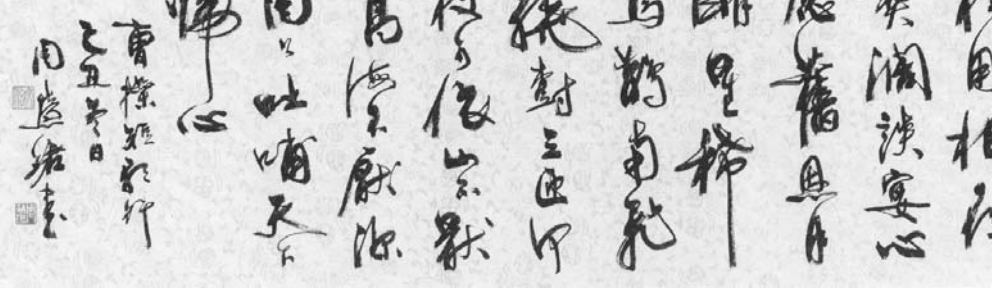 用相存
契闊談宴心
念舊恩月
明星稀
烏鵲南飛
繞樹三匝何
枝可依山不厭
高海不厭深
周公吐哺天下
歸心
曹操短歌行
己丑冬日
周慧珺書